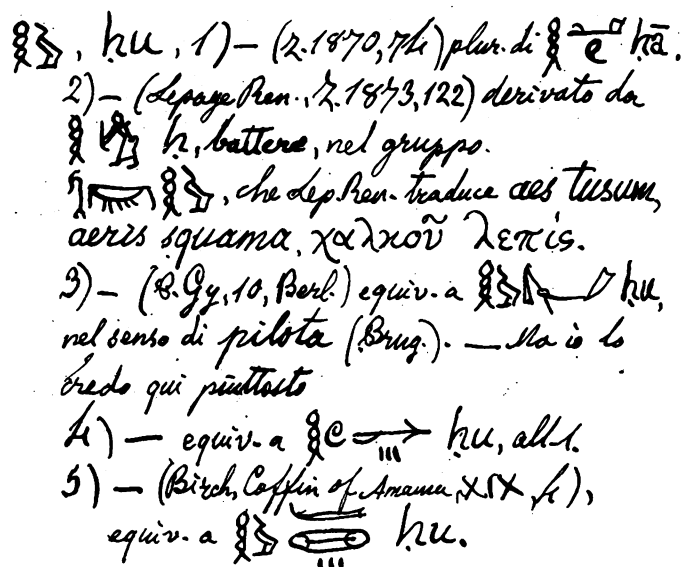 𓎛𓅱, ḥu, 1) — (Z. 1870, 74) plur. di 𓎛 e ḥā.
2) — (Lepage Ren., Z. 1873, 122) derivato da
𓎛 ḥ, battere, nel gruppo.
𓎛, che Lep. Ren. traduce aes tusum,
aeris squama, χαλκοῦ λεπίς.
3) — (B. Gy, 10, Berl.) equiv. a 𓎛 ḥu,
nel senso di pilota (Brug.). — Ma io lo
credo qui piuttosto
4) — equiv. a 𓎛 ḥu, all. 1.
5) — (Birch, Coffin of Amamu, XIX, 4),
equiv. a 𓎛 ḥu.